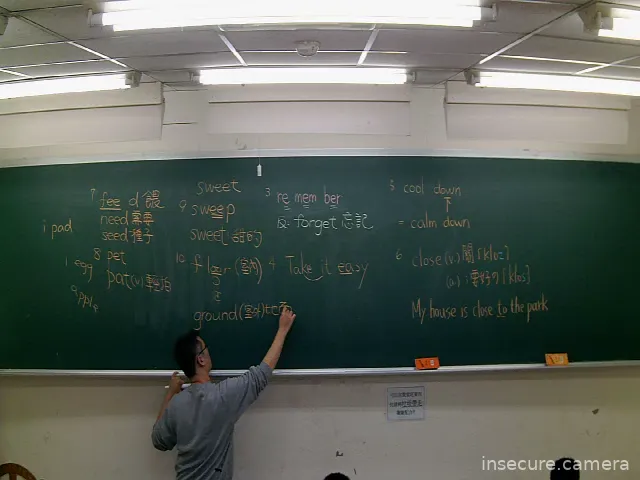 7 feed 餵
need 需要
seed 種子
i pad
8 pet
pat(v.)輕拍
1 egg
apple
sweet
9 sweep
sweet 甜的
10 floor (室內)
ground(室外)
3 re mem ber
反. forget 忘記
4 Take it easy
5 cool down
= calm down
6 close (v.) 關 [kloz]
(a.) : 要好的 [klos]
My house is close to the park
insecure.camera